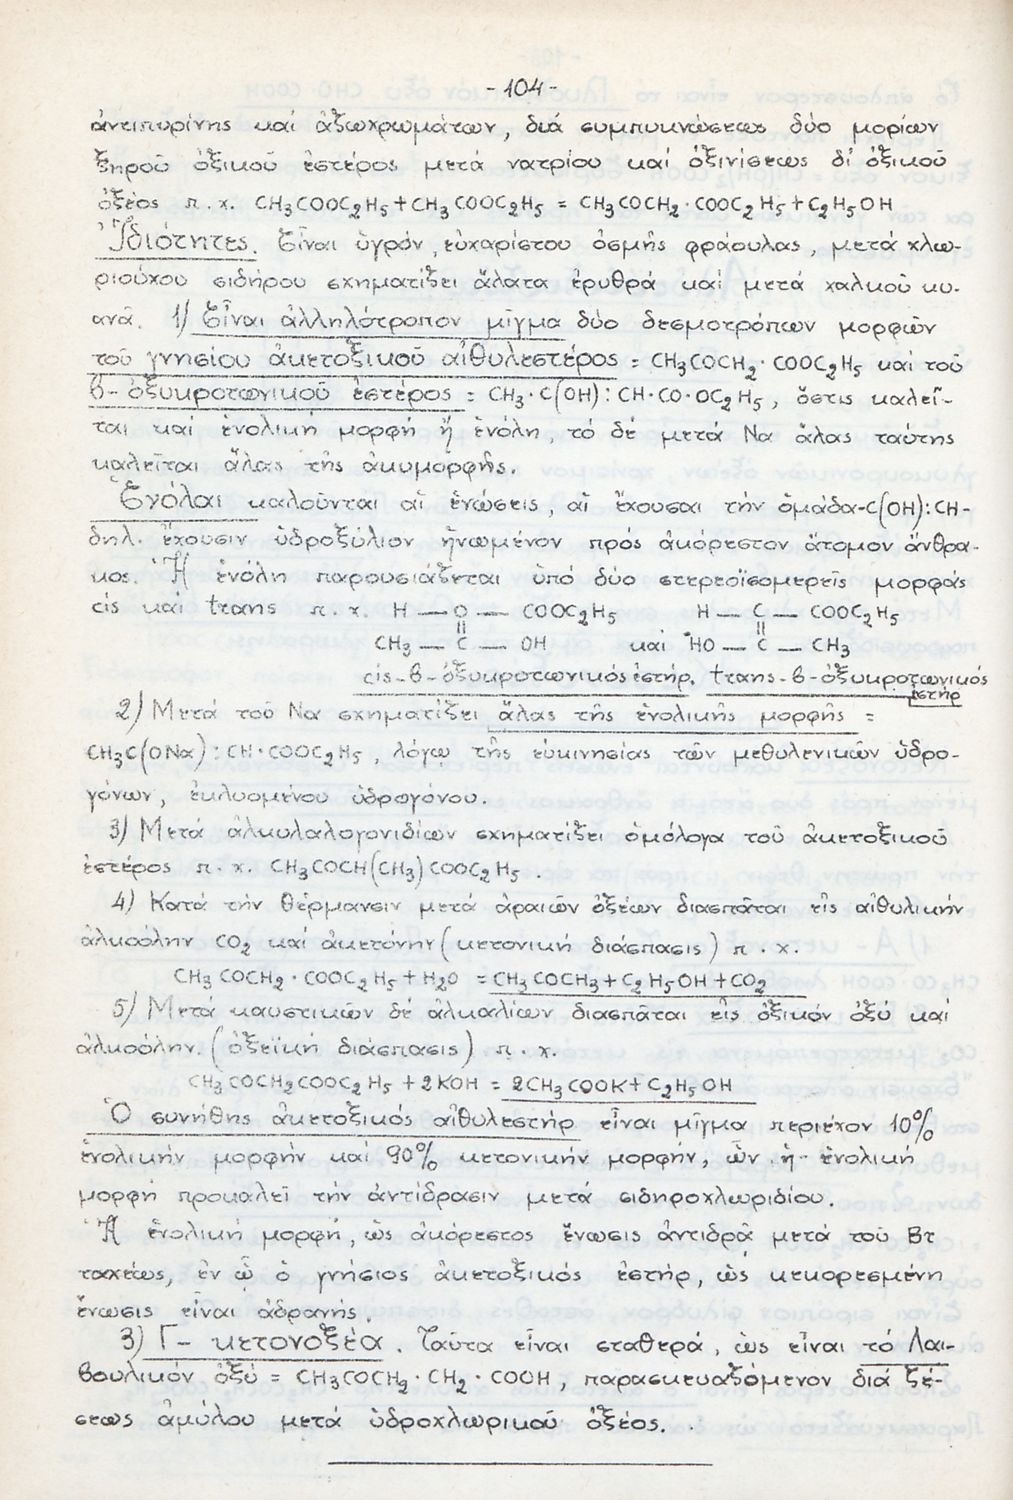 -104-
ἀντιπυρίνης καί ἀζωχρωμάτων, διά συμπυκνώσεως δύο μορίων
ξηροῦ ὀξικοῦ ἐστέρος μετά νατρίου καί ὀξινίσεως δι' ὀξικοῦ
ὀξέος π.χ. CH₃COOC₂H₅+CH₃COOC₂H₅ = CH₃COCH₂·COOC₂H₅+C₂H₅OH
Ἰδιότητες. Εἶναι ὑγρόν, εὐχαρίστου ὀσμῆς φράουλας, μετά χλω-
ριούχου σιδήρου σχηματίζει ἅλατα ἐρυθρά καί μετά χαλκοῦ κυ-
ανᾶ. 1) Εἶναι ἀλληλότροπον μῖγμα δύο δεσμοτρόπων μορφῶν
τοῦ γνησίου ἀκετοξικοῦ αἰθυλεστέρος = CH₃COCH₂·COOC₂H₅ καί τοῦ
β-ὀξυκροτωνικοῦ ἐστέρος = CH₃·C(OH):CH·CO·OC₂H₅, ὅστις καλεῖ-
ται καί ἐνολική μορφή ἤ ἐνόλη, τό δέ μετά Να ἅλας ταύτης
καλεῖται ἅλας τῆς ἀκυμορφῆς.
Ἐνόλαι καλοῦνται αἱ ἑνώσεις, αἱ ἔχουσαι τήν ὁμάδα-C(OH):CH-
δηλ. ἔχουσιν ὑδροξύλιον ἡνωμένον πρός ἀκόρεστον ἄτομον ἄνθρα-
κος. Ἡ ἐνόλη παρουσιάζεται ὑπό δύο στερεοϊσομερεῖς μορφάς
cis καί trans π.χ. H — C — COOC₂H₅ H — C — COOC₂H₅
|| ||
CH₃ — C — OH καί HO — C — CH₃
cis-β-ὀξυκροτωνικός ἐστήρ. trans-β-ὀξυκροτωνικός
ἐστήρ
2) Μετά τοῦ Να σχηματίζει ἅλας τῆς ἐνολικῆς μορφῆς =
CH₃C(ONa):CH·COOC₂H₅, λόγῳ τῆς εὐκινησίας τῶν μεθυλενικῶν ὑδρο-
γόνων, ἐκλυομένου ὑδρογόνου.
3) Μετά ἀλκυλαλογονιδίων σχηματίζει ὁμόλογα τοῦ ἀκετοξικοῦ
ἐστέρος π.χ. CH₃COCH(CH₃)COOC₂H₅.
4) Κατά τήν θέρμανσιν μετά ἀραιῶν ὀξέων διασπᾶται εἰς αἰθυλικήν
ἀλκοόλην CO₂ καί ἀκετόνην (κετονική διάσπασις) π.χ.
CH₃COCH₂·COOC₂H₅+H₂O = CH₃COCH₃+C₂H₅OH+CO₂
5) Μετά καυστικῶν δέ ἀλκαλίων διασπᾶται εἰς ὀξικόν ὀξύ καί
ἀλκοόλην. (ὀξεϊκή διάσπασις) π.χ.
CH₃COCH₂COOC₂H₅+2KOH = 2CH₃COOK+C₂H₅OH
Ὁ συνήθης ἀκετοξικός αἰθυλεστήρ εἶναι μῖγμα περιέχον 10%
ἐνολικήν μορφήν καί 90% κετονικήν μορφήν, ὧν ἡ ἐνολική
μορφή προκαλεῖ τήν ἀντίδρασιν μετά σιδηροχλωριδίου.
Ἡ ἐνολική μορφή, ὡς ἀκόρεστος ἕνωσις ἀντιδρᾶ μετά τοῦ Br
ταχέως, ἐν ᾧ ὁ γνήσιος ἀκετοξικός ἐστήρ, ὡς κεκορεσμένη
ἕνωσις εἶναι ἀδρανής.
3) Γ-κετονοξέα. Ταῦτα εἶναι σταθερά, ὡς εἶναι τό Λαι-
βουλικόν ὀξύ = CH₃COCH₂·CH₂·COOH, παρασκευαζόμενον διά ζέ-
σεως ἀμύλου μετά ὑδροχλωρικοῦ ὀξέος.